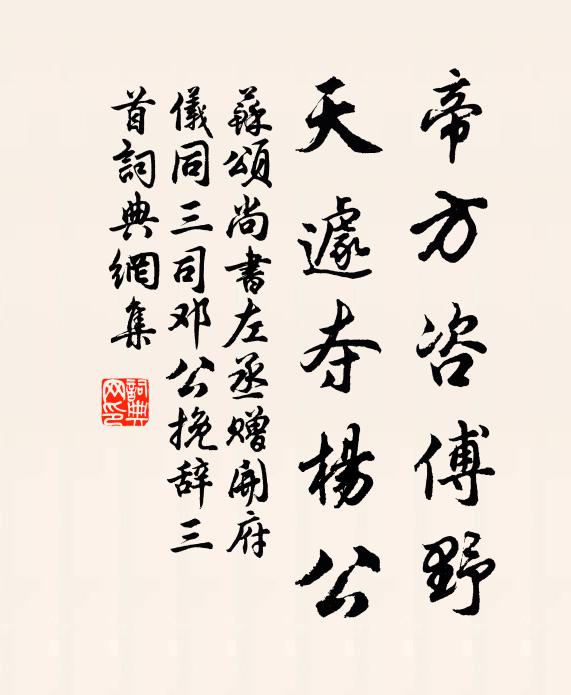 帝方咨傅野
天遽夺楊公
蘇頌尚書左丞赠開府
儀同三司邓公挽辞三
首詞典網集
詞典网印